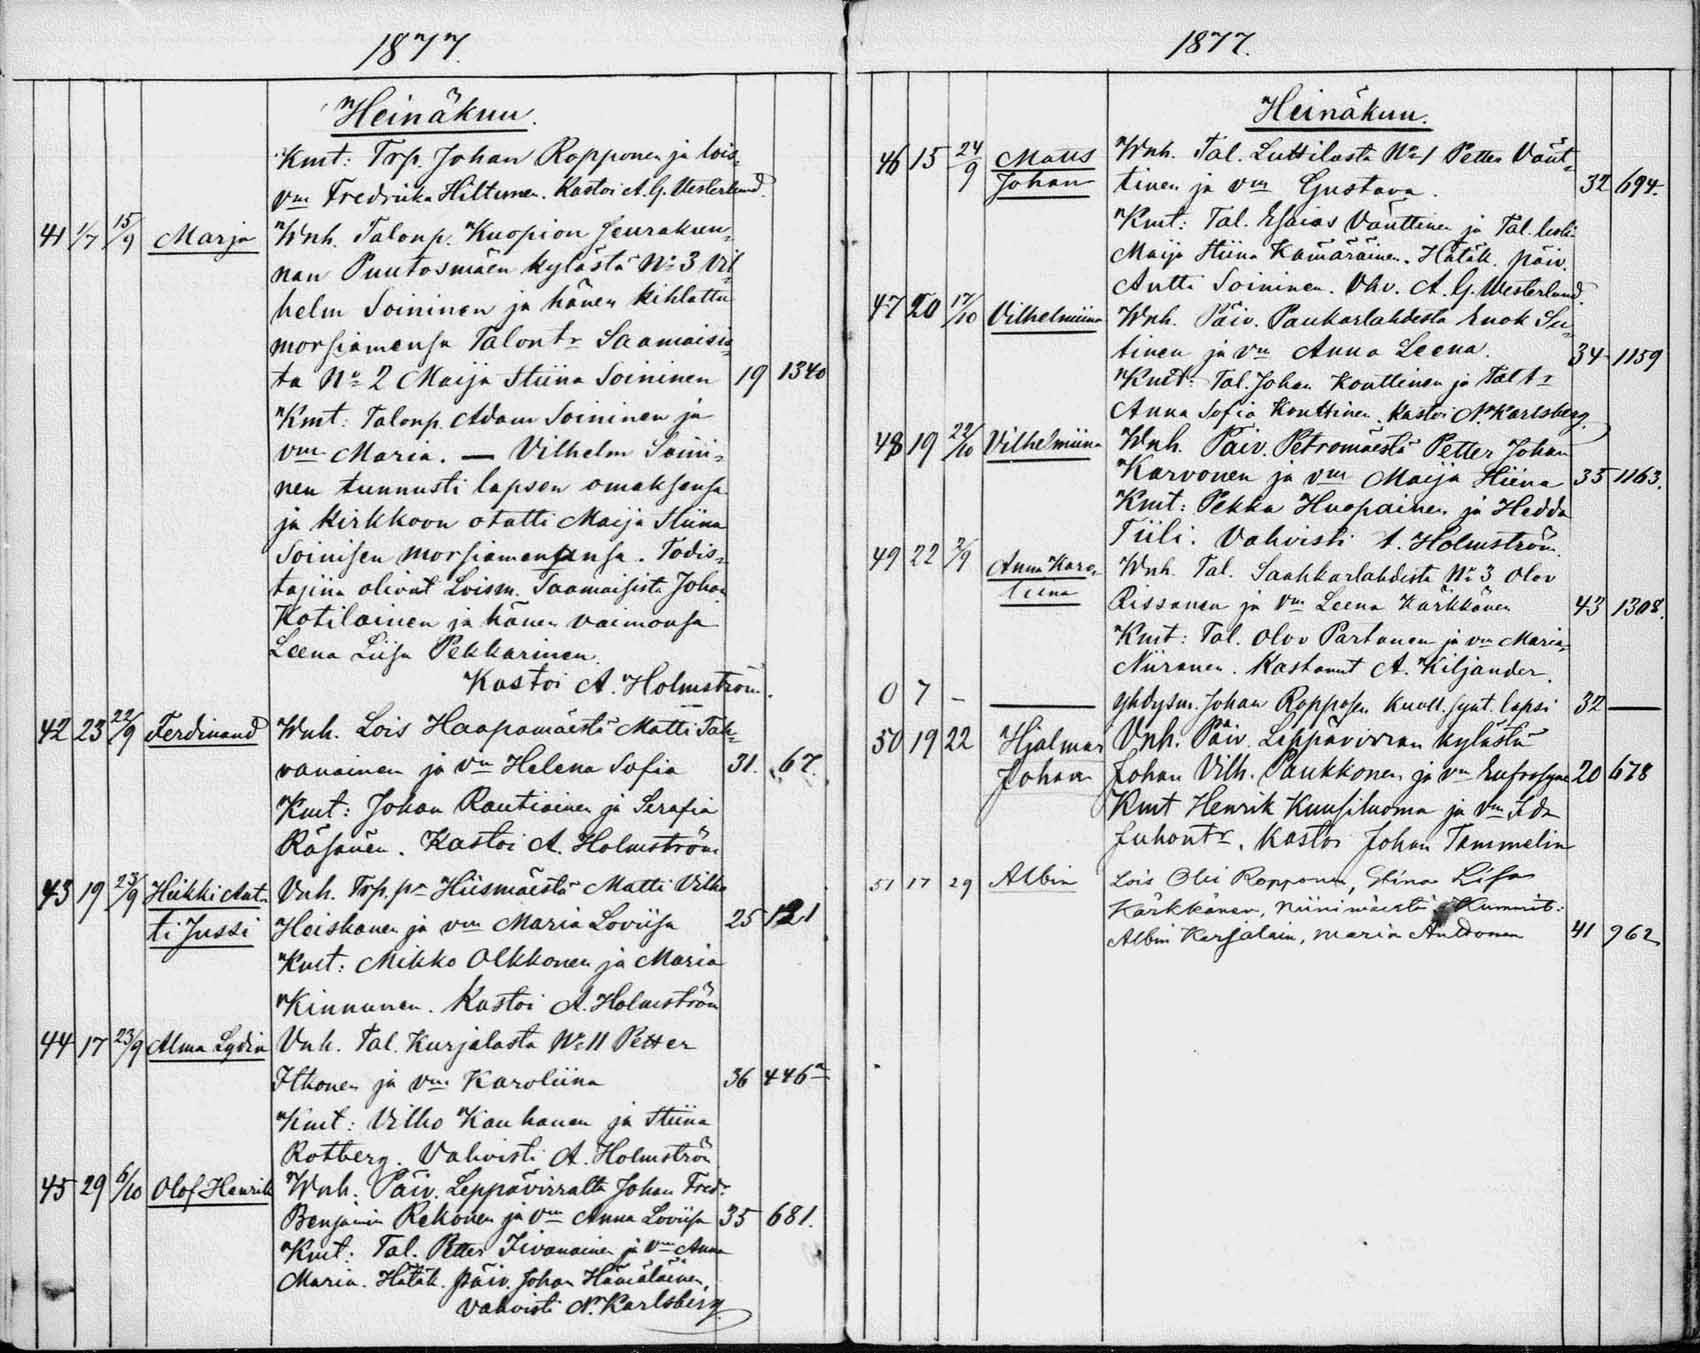 1877.
Heinäkuu.
Kmt: Trp. Johan Ropponen ja lois-
vm Fredrika Hiltunen. Kastoi A. G. Vesterlund.
41 1/7 15/9 Marja Wnh. Talonp. Kuopion seurakun-
nan Puutosmäen kylästä No 3 Vil-
helm Soininen ja hänen kihlattu
morsiamensa Talontr Saamaisis-
ta No 2 Maija Stiina Soininen 19 1340
Kmt: Talonp. Adam Soininen ja
vm Maria. — Vilhelm Soini-
nen tunnusti lapsen omaksensa
ja kirkkoon otatti Maija Stiina
Soinisen morsiamenansa. Todis-
tajina olivat Loism. Saamaisista Johan
Kotilainen ja hänen vaimonsa
Leena Liisa Pekkarinen.
Kastoi A. Holmström.
42 23 22/9 Ferdinand Wnh. Lois Haapamäestä Matti Tah-
vanainen ja vm Helena Sofia 31. 67.
Kmt: Johan Rautiainen ja Serafia
Räsänen. Kastoi A. Holmström
43 19 23/9 Heikki Ant- Vnh. Trp. pr Hiismäestä Matti Vilho
ti Jussi Hoiskanen ja vm Maria Loviisa 25 121
Kmt: Mikko Olkkonen ja Maria
Kinnunen. Kastoi A. Holmström
44 17 23/9 Alma Lydia Vnh. Tal. Kurjalasta No 11 Petter
Ithonen ja vm Karoliina 36 446a
Kmt: Vilho Kauhanen ja Stiina
Rotberg. Vahvisti A. Holmström
45 29 6/10 Olof Henrik Wnh. Päiv. Leppävirralta Johan Fredr
Benjamin Rekonen ja vm Anna Loviisa 35 681.
Kmt: Tal. Petter Iivanainen ja vm Anna
Maria. Hätäk. päiv. Johan Hämäläinen.
Vahvisti N. Karlsberg
1877.
Heinäkuu.
46 15 24/9 Matts Wnh. Tal. Luttilasta No 1 Petter Vänt-
Johan tinen ja vm Gustava. 32 694.
Kmt: Tal. Esaias Vänttinen ja Tal. leski
Maija Stiina Kämäräinen. Hätäk. päiv.
Antti Soininen. Vhv. A. G. Westerlund.
47 20 17/10 Vilhelmiina Wnh. Päiv. Paukarlahdesta Enok Su-
tinen ja vm Anna Leena. 34 1159
Kmt: Tal. Johan Konttinen ja Tal tr
Anna Sofia Konttinen. Kastoi N. Karlsberg.
48 19 22/10 Vilhelmiina Wnh. Päiv. Petromäestä Petter Johan
Karvonen ja vm Maija Stiina 35 1163.
Kmt: Pekka Huopainen ja Hedda
Tiili. Vahvisti A. Holmström.
49 22 2/9 Anna Karo- Wnh. Tal. Saahkarlahdesta No 3 Olov
liina Rissanen ja vm Leena Kärkkänen 43 1308.
Kmt: Tal. Olov Partanen ja vm Maria
Niiranen. Kastanut A. Kiljander.
0 7 — — yhdysm. JohanRopposen kuoll. synt. lapsi 32 —
50 19 22 Hjalmar Vnh. Päiv. Leppävirran kylästä
Johan Johan Vilh. Paukkonen ja vm Eufrosyne 20 678
Kmt Henrik Kuusiluoma ja vm Ida
Juhontr. Kastoi Johan Tammelin
51 17 29 Albin Lois Olli Ropponen, Stina Lisa
Kärkkänen, Niinimäestä Kummit:
Albin Karjalain, Maria 41 962